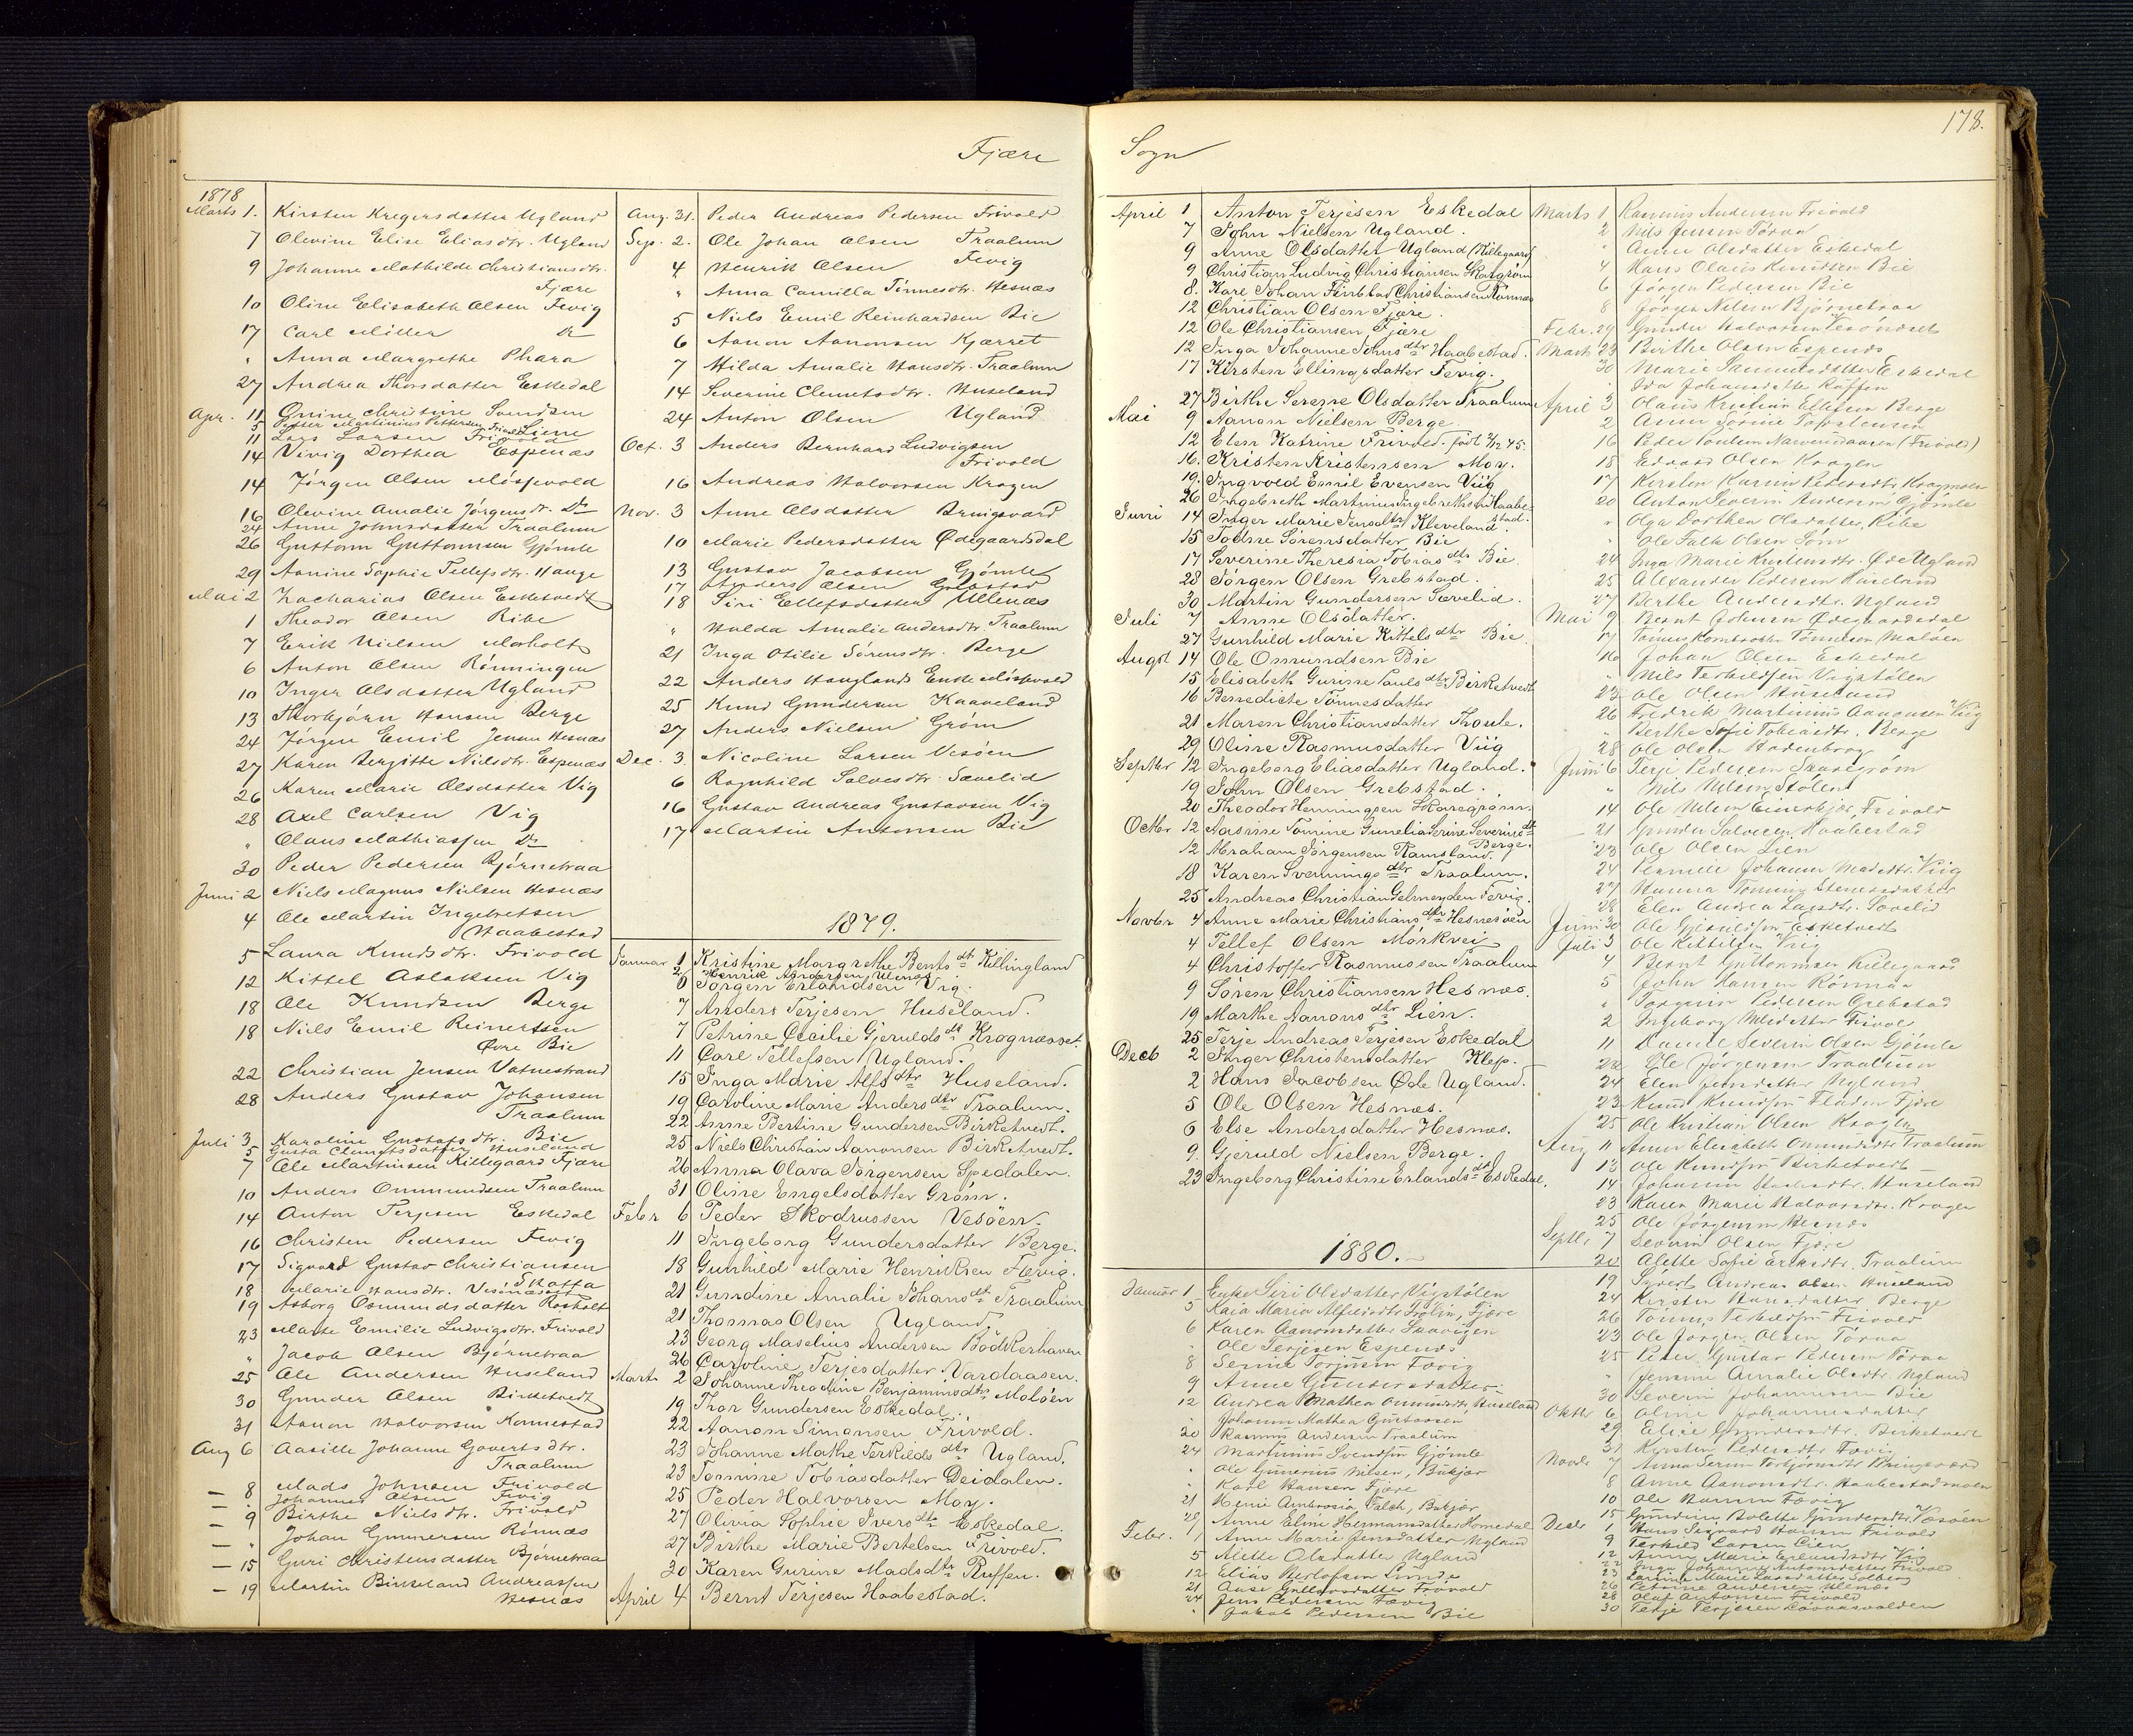 Fjære
Sogn
178.
1878
Marts 1. Kirsten Kregersdatter Ugland
7 Olevine Elise Eliasdtr. Ugland
9 Johanne Mathilde Christiansdtr.
Fjære
10 Oline Elisabeth Olsen Fevig
17 Carl Miller
" Anna Margrethe Phara
27 Andrea Thorsdatter Eskedal
Apr. 11 Gunine Christine Svendsen
5 Petter Martinius Pettersen Frivold
11 Lars Larsen Frivold
14 Vivig Dorthea Espenæs
14 Jørgen Olsen Møsfvold
16 Olevine Amalie Jørgensdr. Do
24 Anne Johnsdatter Traalum
26 Guttorm Guttormsen Gjømle
29 Aanine Sophie Tellefsdtr. Hauge
Mai 2 Zacharias Olsen Esketvedt
1 Theodor Olsen Ribe
7 Erik Nielsen Morholt
6 Anton Olsen Rønningen
10 Inger Olsdatter Ugland
13 Thorbjørn Hansen Berge
24 Jørgen Emil Jensen Hesnæs
27 Karen Bergitte Nielsdtr. Espenæs
26 Karen Marie Olsdatter Vig
28 Axel Carlsen Vig
" Olaus Mathiassen Do
30 Peder Pedersen Bjørnetraa
Juni 2 Niels Magnus Nielsen Hesnæs
4 Ole Martin Ingebretsen
Haabestad
5 Laura Knudsdtr. Frivold
12 Kittel Aslaksen Vig
18 Ole Knudsen Berge
18 Niels Emil Reinertsen
Øvre Bie
22 Christian Jensen Vatnestrand
28 Anders Gustav Johansen
Traalum
Juli 3 Karoline Gustafsdtr. Bie
5 Gusta Clemetsdatter Huseland
7 Ole Martinsen Killegaard Fjære
10 Anders Ommundsen Traalum
14 Anton Terjesen Eskedal
16 Christen Pedersen Fevig
17 Sigvard Gustav Christiansen
Skatta
18 Marie Hansdtr.
19 Asborg Osmundsdatter Rosholt
23 Marte Emilie Ludvigsdtr. Frivold
" Jacob Olsen Bjørnetraa
25 Ole Andersen Huseland
30 Gunder Olsen Birketvedt
31 Aanon Halvorsen Konnestad
Aug 6 Aasille Johanne Govertsdtr.
Traalum
— 8 Mads Johnsen Frivold
Johannes Olsen Fevig
— 9 Birthe Nielsdtr. Frivold
— " Johan Gunnersen Rønnæs
— 15 Guri Christensdatter Bjørnetraa
— 19 Martin Birkeland Andreassen
Hesnæs
Aug. 31. Peder Andreas Pedersen Frivold
Sep. 2. Ole Johan Olsen Traalum
4 Henrik Olsen Fevig
" Anna Camilla Tønnesdtr. Hesnæs
5 Niels Emil Reinhardsen Bie
6 Aanon Aanonsen Kjærret
7 Hilda Amalie Hansdtr. Traalum
14 Severine Clemetsdtr. Huseland
24 Anton Olsen Ugland
Oct. 3 Anders Bernhard Ludvigsen
Frivold
16 Andreas Halvorsen Kragen
Nov. 3 Anne Olsdatter Bringsvard
10 Marie Pedersdatter Ødegaardsdal
13 Gustav Jacobsen Gjømle
17 Anders Olsen Grefstad
18 Siri Ellefsdatter Ullenæs
" Halda Amalie Andersdtr Traalum
21 Inga Otilie Sørensdtr. Berge
22 Anders Hauglands Enke Møsfvold
25 Knud Gundersen Kaaveland
27 Anders Nielsen Grøm
Dec. 3. Nicoline Larsen Vesøen
6 Ragnhild Salvesdtr. Sævelid
16 Gustav Andreas Gustavsen Vig
17 Martin Antonsen Bie
1879.
Januar 1 Kristine Margrethe Bentsdt Killingland
2 Henrik Andersen Ulenæs
6 Jørgen Erlandsen Vig.
7 Anders Terjesen Huseland.
7 Petrine Cecilie Gjeruldsdt Kragnæsset.
11 Carl Tellefsen Ugland.
15 Inga Marie Alfsdtr Huseland.
19 Caroline Marie Andersdtr Traalum.
22 Anne Bertine Gundersen Birketvedt.
25 Niels Christian Aanonsen Birketvedt.
26 Anna Olava Jørgensen Spedalen.
31 Oline Engelsdatter Grøm.
Febr 6 Peder Skodrussen Vesøen.
11 Ingeborg Gundersdatter Berge.
18 Gunhild Marie Henriksen Fævig.
21 Gundine Amalie Johansdt Traalum
21 Thomas Olsen Ugland.
23 Georg Maselius Andersen Bødkerhaven
26 Caroline Terjesdatter Vardaasen.
Marts 2 Johanne Theodine Benjaminsdtr Maløen
19 Thor Gundersen Eskedal.
22 Aanon Simonsen Frivold.
23 Johanne Mathe Terkildsdtr Ugland.
23 Tomine Tobiasdatter Deidalen.
25 Peder Halvorsen Moy.
27 Olivia Sophie Iversdt Eskedal.
27 Birthe Marie Bertelsen Frivold.
30 Karen Gurine Madsdtr Ruffen.
April 4 Bernt Terjesen Haabestad.
April 1 Anton Terjesen Eskedal
7 John Nielsen Ugland.
9 Anne Olsdatter Ugland (Killegaard)
9 Christian Ludvig Christiansen Skaregrøm
8. Kare Johan Finblad Christiansen Rønnæs
12 Christian Olsen Fjære.
12 Ole Christiansen Fjære
12 Inga Johanne Johnsdtr Haabestad.
17 Kirsten Ellingsdatter Fevig.
27 Birthe Serene Olsdatter Traalum
Mai 9 Aanon Nielsen Berge.
12 Elen Katrine Frivold. født 2/12 45.
16. Kristen Kristensen Moy.
19. Ingvold Emil Evensen Viig
26 Ingebreth Martinius Ingebrethsen Haabe-
stad.
Juni 14 Inger Marie Jensdtr Kleveland
15 Todne Sørensdatter Bie
17 Severine Theresia Tobiasdtr Bie
28 Jørgen Olsen Grebstad.
30 Martin Gundersen Sævelid.
Juli 7 Anne Olsdatter.
27 Gunhild Marie Kittelsdtr Bie.
Augst 14 Ole Omundsen Bie
15 Elisabeth Gurine Paulsdtr Birketvedt
16 Benedicte Tønnesdatter
21 Maren Christiansdatter Thoule.
29 Oline Rasmusdatter Viig
Septbr 12 Ingeborg Eliasdatter Ugland.
19 John Olsen Grebstad.
20 Theodor Henningsen Skaregrøm.
Octbr 12 Aasine Tomine Gunelia Serine Severinsdt
Berge.
12 Abraham Jørgensen Ramsland.
18 Karen Sveinungsdtr Traalum.
25 Andreas Christian Gelmeyden Fevig.
Novbr 4 Anne Marie Christiansdtr Hesnesøen
4 Tellef Olsen Mørkvei
4 Christoffer Rasmussen Traalum
9 Søren Christiansen Hesnes.
19 Marthe Aanonsdtr Lien.
25 Terje Andreas Terjesen Eskedal
Decb 2 Inger Christensdatter Klep.
2 Hans Jacobsen Øde Ugland.
5 Ole Olsen Hesnæs.
6 Else Andersdatter Hesnæs.
9. Gjeruld Nielsen Berge.
23 Ingeborg Christine Erlandsdtr Eskedal.
1880.
Januar 1 Enke Siri Olsdatter Vigstølen
5 Kaia Maria Alfsdatter Trolin, Fjære
6 Karen Aanonsdatter Skavigen
" Ole Terjesen Espenes
8 Serine Torjusen Fævig
9 Anne Gundersdatter
12 Andrea Mathea Omundsdtr Huseland
" Johanne Mathea Gustavsen
20 Rasmus Andersen Traalum
24 Martinius Svendsen Gjømle
" Ole Gunerius Nilsen, Bukjær
" Karl Hansen Fjære
21 Henie Ambrosia Falch, Bukjær
28 Anne Eline Hermansdatter Homedal
Febr. 1 Anne Marie Jensdatter Ugland
5 Alette Olsdatter Ugland
12 Elias Herlofsen Sunde
21 Aase Gullovsdatter Frivold
24 Jens Pedersen Fævig
" Jakob Pedersen Bie
Marts 1 Rasmus Andersen Frivold
2 Nils Jensen Tøraa
" Anne Olsdatter Eskedal
4 Hans Olaus Knudsen Bie
6 Jørgen Pedersen Bie
8 Jørgen Nilsen Bjørnetraa
Febr. 29 Gunder Halvorsen
Marts 23 Birthe Olsen Espenes
30 Marie Samuelsdatter Eskedal
" Ida Johansdatter Røffen
April 3 Olaus Kristian Ellefsen Berge
2 Anne Torine
16 Peder Poulsen (Frivold)
18 Edvard Olsen Kragen
17 Kirsten Karine Pedersdtr Kragmoen
20 Anton Severin Andersen Gjømle
" Olga Dorthea Olsdatter, Ribe
" Ole Falk Olsen
24 Inga Marie Knudsdtr. Øde Ugland
25 Alexander Pedersen
27 Berthe Andersdtr. Ugland
Mai 9 Bernt Johnsen Ødegaardsdal
17 Tønnes Tønnesen Maløen
16 Johan Olsen Eskedal
" Nils Terkildsen Vigstølen
23 Ole Olsen Huseland
26 Fredrik Martinius Aanonsen Viig
" Berthe Sofie Tobiasdtr. Berge
28 Ole Olsen Hodenbrog
Juni 6 Terje Pedersen Skaregrøm
" Nils Nilsen Stølen
14 Ole Nilsen Frivold
21 Gunder Salvesen Haabestad
23 Ole Olsen Lien
24 Pernille Johanne Madsdtr. Viig
27 Hanna Tomine Stenersdatter
28 Elen Andrea Larsdtr. Sævelid
Juni 30 Ole Gjeruldsen Esketvedt
Juli 3 Ole Kittilsen Viig
4 Bernt Guttormsen Killegaard
5 John Hansen Rønnæs
" Torgrim Pedersen Grebstad
2 Ingeborg Frivol
11 Daniel Severin Olsen Gjømle
22 Ole Jørgensen Traalum
24 Elen Jensdatter Ugland
23 Knud Knudsen Fladen Fjære
25 Ole Kristian Olsen Kragen
Aug 11 Anne Elisabeth Omundsdtr Traalum
13 Ole Knudsen Birketvedt
14 Johanne Huseland
23 Karen Marie Halvorsdtr. Kragen
25 Ole Jørgensen Hesnes
Septbr 7 Severin Olsen Fjære
20 Alette Sofie Eriksdtr. Traalum
19 Syvert Andreas Olsen Huseland
24 Kirsten Hansdatter Berge
26 Tønnes Terkildsen Frivold
23 Ole Jørgen Olsen Tøraa
25 Peder Gustav Pedersen Tøraa
" Jensine Amalie Olsdtr. Ugland
30 Severin Johannesen Bie
Oktbr 6 Oline Johannesdatter
29 Elise Gundersdtr. Birketvedt
31 Kirsten Pedersdtr Fævig
Novbr 7 Anna Serine Torbjørnsdtr Bringsværd
8 Anne Aanonsdtr. Haabestadmoen
10 Ole Hansen Fævig
15 Gundine Bolette Gundersdtr. Væsøen
Decbr 1 Hans Sigvard Hansen Frivold
9 Terkild Larsen Lien
12 Anne Marie Erlandsdtr Viig
22 Inga Johanne Antonsdatter Frivold
23 Lavine Marie Larsdatter Solberg
26 Petrine Andersen Ulenæs
28 Oluf Antonsen Frivold
30 Terje Terjesen